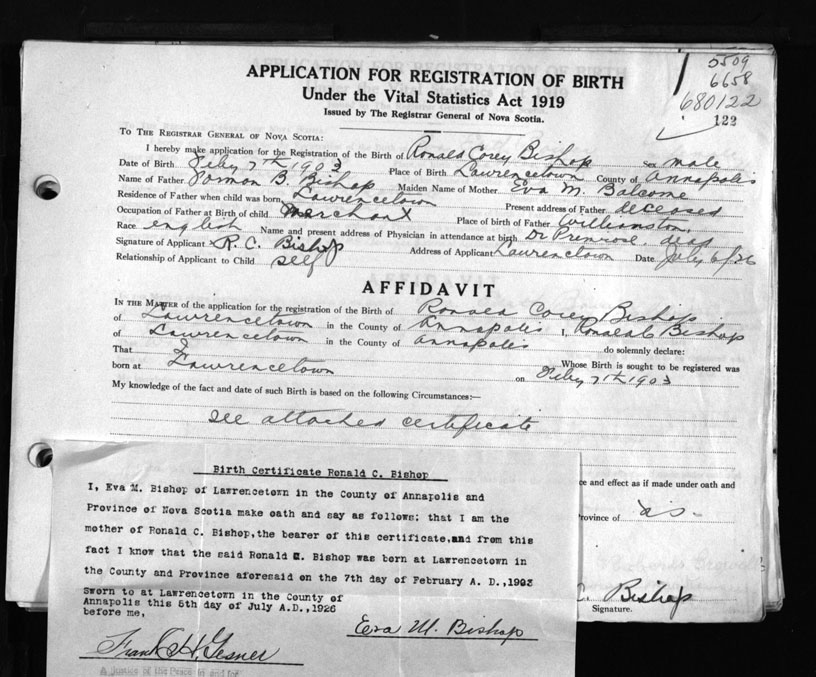 5509
6658
680122
122
APPLICATION FOR REGISTRATION OF BIRTH
Under the Vital Statistics Act 1919
Issued by The Registrar General of Nova Scotia.
TO THE REGISTRAR GENERAL OF NOVA SCOTIA:
I hereby make application for the Registration of the Birth of Ronald Corey Bishop Sex male
Date of Birth Feby 7th 1903 Place of Birth Lawrencetown County of Annapolis
Name of Father B. Bishop Maiden Name of Mother Eva M. Balcome
Residence of Father when child was born Lawrencetown Present address of Father deceased
Occupation of Father at Birth of child Merchant Place of birth of Father Williamston,
Race english Name and present address of Physician in attendance at birth Dr Primrose, dead
Signature of Applicant R. C. Bishop Address of Applicant Lawrencetown Date July 6/26
Relationship of Applicant to Child self
AFFIDAVIT
IN THE MATTER of the application for the registration of the Birth of Ronald Corey Bishop
of Lawrencetown in the County of Annapolis I, Ronald C Bishop
of Lawrencetown in the County of Annapolis do solemnly declare:
That I Whose Birth is sought to be registered was
born at Lawrencetown on Feby 7th 1903
My knowledge of the fact and date of such Birth is based on the following Circumstances:—
see attached certificate
ce and effect as if made under oath and
Province of
C. Bishop
Signature.
Birth Certificate Ronald C. Bishop
I, Eva M. Bishop of Lawrencetown in the County of Annapolis and
Province of Nova Scotia make oath and say as follows; that I am the
mother of Ronald C. Bishop,the bearer of this certificate,and from this
fact I know that the said Ronald C. Bishop was born at Lawrencetown in
the County and Province aforesaid on the 7th day of February A. D.,1903
Sworn to at Lawrencetown in the County of
Annapolis this 5th day of July A.D.,1926
before me,
Eva M. Bishop
Frank H. Gesner
A Justice of the Peace in and for